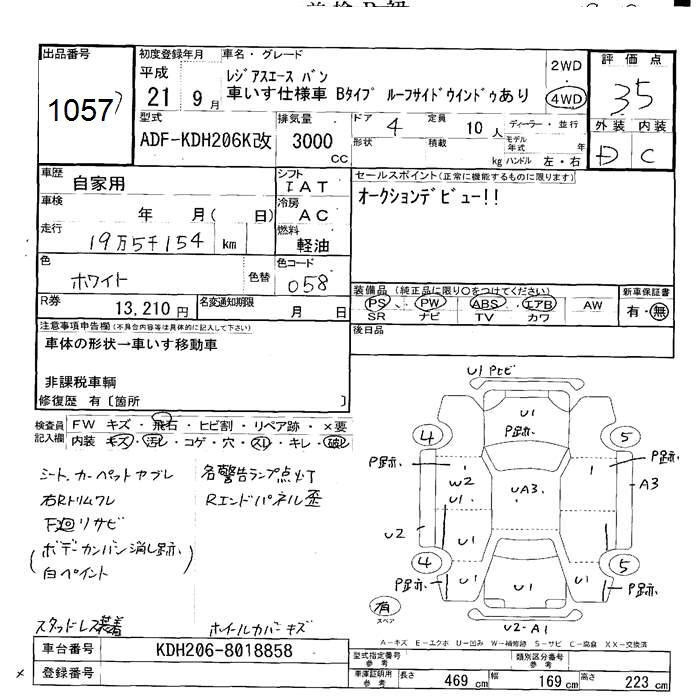 出品番号
1057
初度登録年月
平成
21 9月
車名・グレード
レジアスエース バン
車いす仕様車 Bタイプ ルーフサイドウインドゥあり
2WD
4WD
評価点
35
外装 内装
D C
型式
ADF-KDH206K改
排気量
3000
cc
ドア 4
形状
定員 10人
積載
kg
ディーラー・並行
モデル年式 年
ハンドル 左・右
車歴
自家用
シフト
IAT
冷房
AC
燃料
軽油
車検
年 月( 日)
走行
19万5千154 km
色
ホワイト
色替
色コード
058
R券
13,210円
名変通知期限
月 日
セールスポイント(正常に機能するものに限ります)
オークションデビュー!!
装備品 (純正品に限り○をつけてください)
PS PW ABS エアB AW
SR ナビ TV カワ
新車保証書
有・無
後日品
注意事項申告欄(不具合内容等は具体的に記入して下さい)
車体の形状→車いす移動車
非課税車輌
修復歴 有〔箇所 〕
検査員記入欄
FW キズ・飛石・ヒビ割・リペア跡・×要
内装 キズ・汚レ・コゲ・穴・スレ・キレ・破レ
シート、カーペットヤブレ
右Rトリムワレ
F廻リサビ
(ボデーカンバン消し跡、
白ペイント)
スタッドレス装着
各警告ランプ点灯
Rエンドパネル歪
ホイールカバーキズ
U1 Pヒビ
U1
P跡
4
5
P跡
P跡
W2
U1
UA3
A3
U2
U1
U1
4
5
P跡
U1
U1
U1
P跡
有
スペア
U2-A1
A-キズ E-エクボ U-凹み W-補修跡 S-サビ C-腐食 XX-交換済
車台番号
KDH206-8018858
登録番号
型式指定番号
参考
類別区分番号
参考
車庫証明用
参考
長さ 469 cm
幅 169 cm
高さ 223 cm